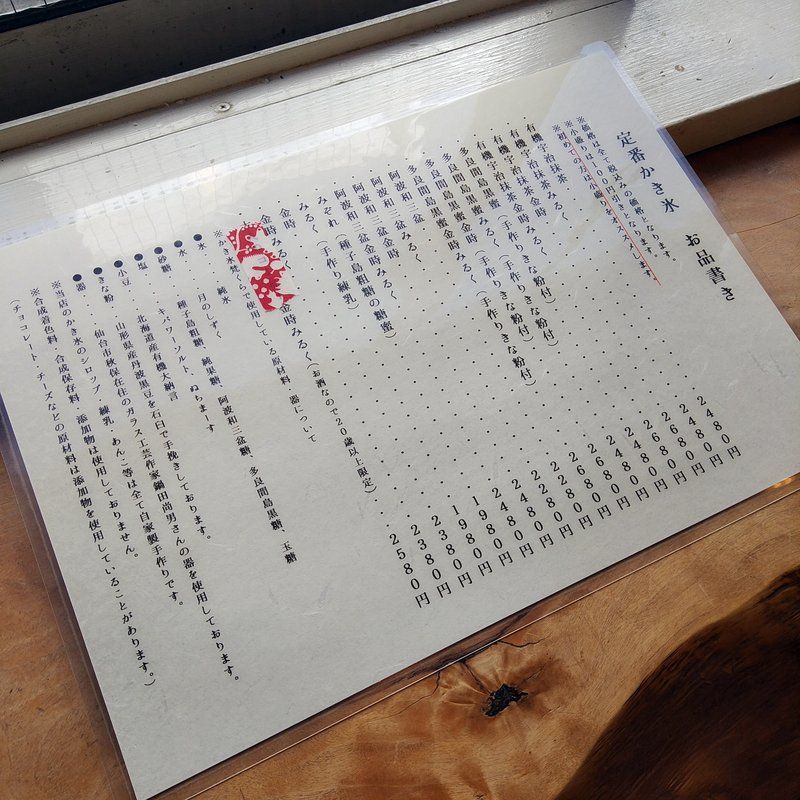 定番かき氷 お品書き
※価格は全て税込みの価格となります。
※小盛りは100円引きとなります。
※初めての方は小盛りをオススメします。
有機宇治抹茶
有機宇治抹茶みるく
有機宇治抹茶金時 (手作りきな粉付)
有機宇治抹茶金時みるく (手作りきな粉付)
多良間島黒蜜
多良間島黒蜜みるく
多良間島黒蜜金時 (手作りきな粉付)
多良間島黒蜜金時みるく (手作りきな粉付)
阿波和三盆
阿波和三盆みるく
阿波和三盆金時
阿波和三盆金時みるく
みぞれ (種子島粗糖の糖蜜)
みるく (手作り練乳)
金時
金時みるく
金時みるく (お酒なので20歳以上限定) 2580円
※かき氷梵くらで使用している原材料 器について
●氷 純氷 月のしずく
●砂糖 種子島粗糖、純果糖、阿波和三盆糖、多良間島黒糖、玉糖
●塩 キパワーソルト、ぬちまーす
●小豆 北海道産有機大納言
●きな粉 山形県産丹波黒豆を石臼で手挽きしております。
●器 仙台市秋保在住のガラス工芸作家鍋田尚男さんの器を使用しております。
※当店のかき氷のシロップ、練乳、あんこ等は全て自家製手作りです。
※合成着色料・合成保存料・添加物は使用しておりません。
(チョコレート・チーズなどの原材料は添加物を使用していることがあります。)